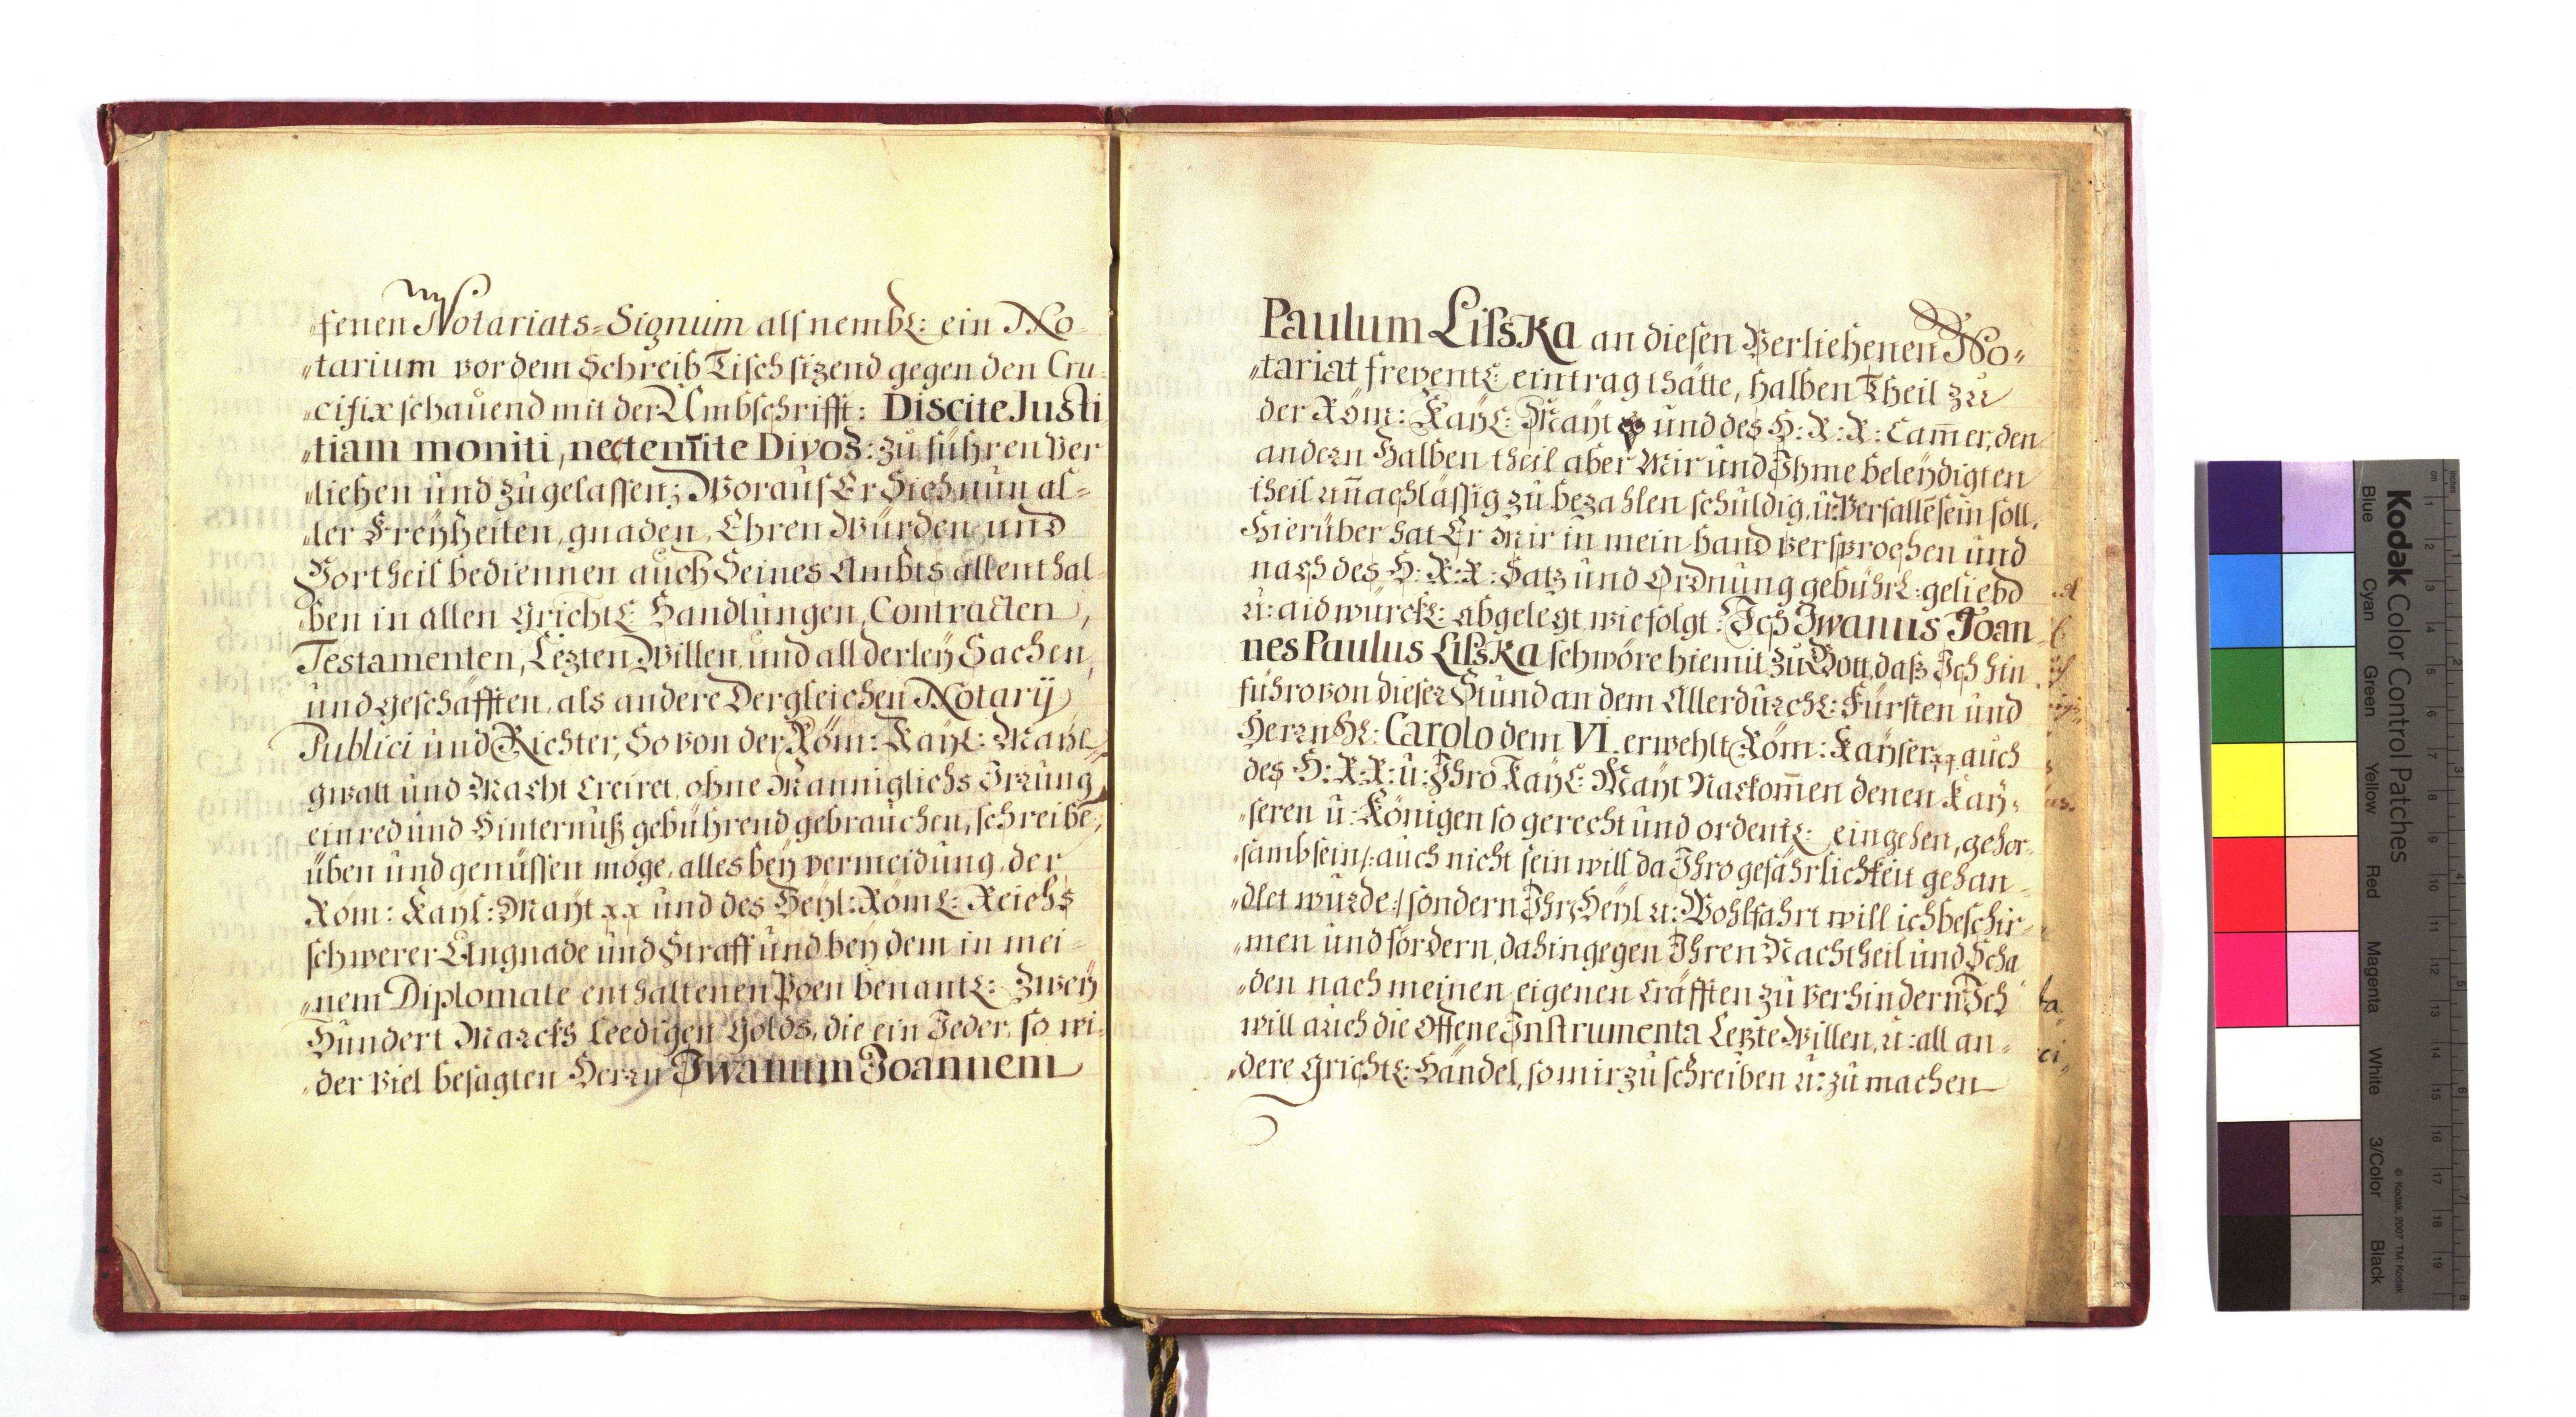 fenen Notariats=Signum alß nembl: ein No=
„tarium vor dem Schreib Tisch sizend gegen den Cru„
„cifix schauend mit der Umbschrifft: Discite Justi
„tiam moniti, nec tem̅ite Divos: zu führen Ver
„liehen und zugelassen; Worauf Er Sich nun al=
„ler Freÿheiten, gnaden, Ehren Würden und
Vortheil bediennen auch Seines Ambts allenthal=
„ben in allen grichtl: Handlungen, Contracten,
Testamenten, Lezten Willen, und all derleÿ Sachen,
und geschäfften, als andere Dergleichen Notarÿ
Publici und Richter, So von der Röm: Kaÿl: Maÿt
gwalt und Macht Creiret, ohne Manniglichs Irrung
einred und Hinternuß gebührend gebrauchen, schreibe̅,
üben und genüssen möge, alles beÿ vermeidung, der
Röm: Kaÿl: Maÿt xx und des Heÿl: Röml: Reichs
schwerer Ungnade und Straff und beÿ dem in mei=
„nem Diplomate enthaltenen Poen benantl: Zweÿ
Hundert Marckh Leedigen Golds, die ein Jeder, so wi„
„der viel besagten Herrn Iwanum Joannem
Paulum Lißka an diesen Verliehenen No„
„tariat freventl: eintrag thätte, halben Theil zu
der Röm: Kaÿl: Maÿt und des H: R: R: Cam̅er, den
andern Halben theil aber Mir und Ihme beleÿdigten
theil un̅achlässig zu bezahlen schuldig, u: Verfalle̅ sein soll,
Hierüber hat Er Mir in mein Hand versprochen und
nach des H: R: R: Satz und Ordnung gebührl: geliebd
u: aid würckl: abgelegt wie folgt: Ich Iwanus Joan
nes Paulus Lißka schwöre hiemit zu Gott, daß Ich hin
führo von dieser Stund an dem Allerdurchl: Fürsten und
Herrn H: Carolo dem VI. erwehlt Röm: Kaÿser xx auch
des H: R: R: u: Ihro Kaÿl: Maÿt Nackom̅en denen Kaÿ„
„seren u: Königen so gerecht und ordentl: eingehen, gehor„
„samb sein /: auch nicht sein will da Ihro gefährlichkeit gehan„
„dlet wurde :/ sondern Ihr Heÿl u: Wohlfahrt will ich beschir„
„men und fördern, dahingegen Ihren Nachtheil und Scha
„den nach meinen eigenen Cräfften zu Verhindern. Ich
will auch die Offene Instrumenta Lezte Willen, u: all an„
„dere grichtl: Händel, so mir zu schreiben u: zu machen
Kodak Color Control Patches
© Kodak, 2007 TM: Kodak
Blue Cyan Green Yellow Red Magenta White 3/Color Black